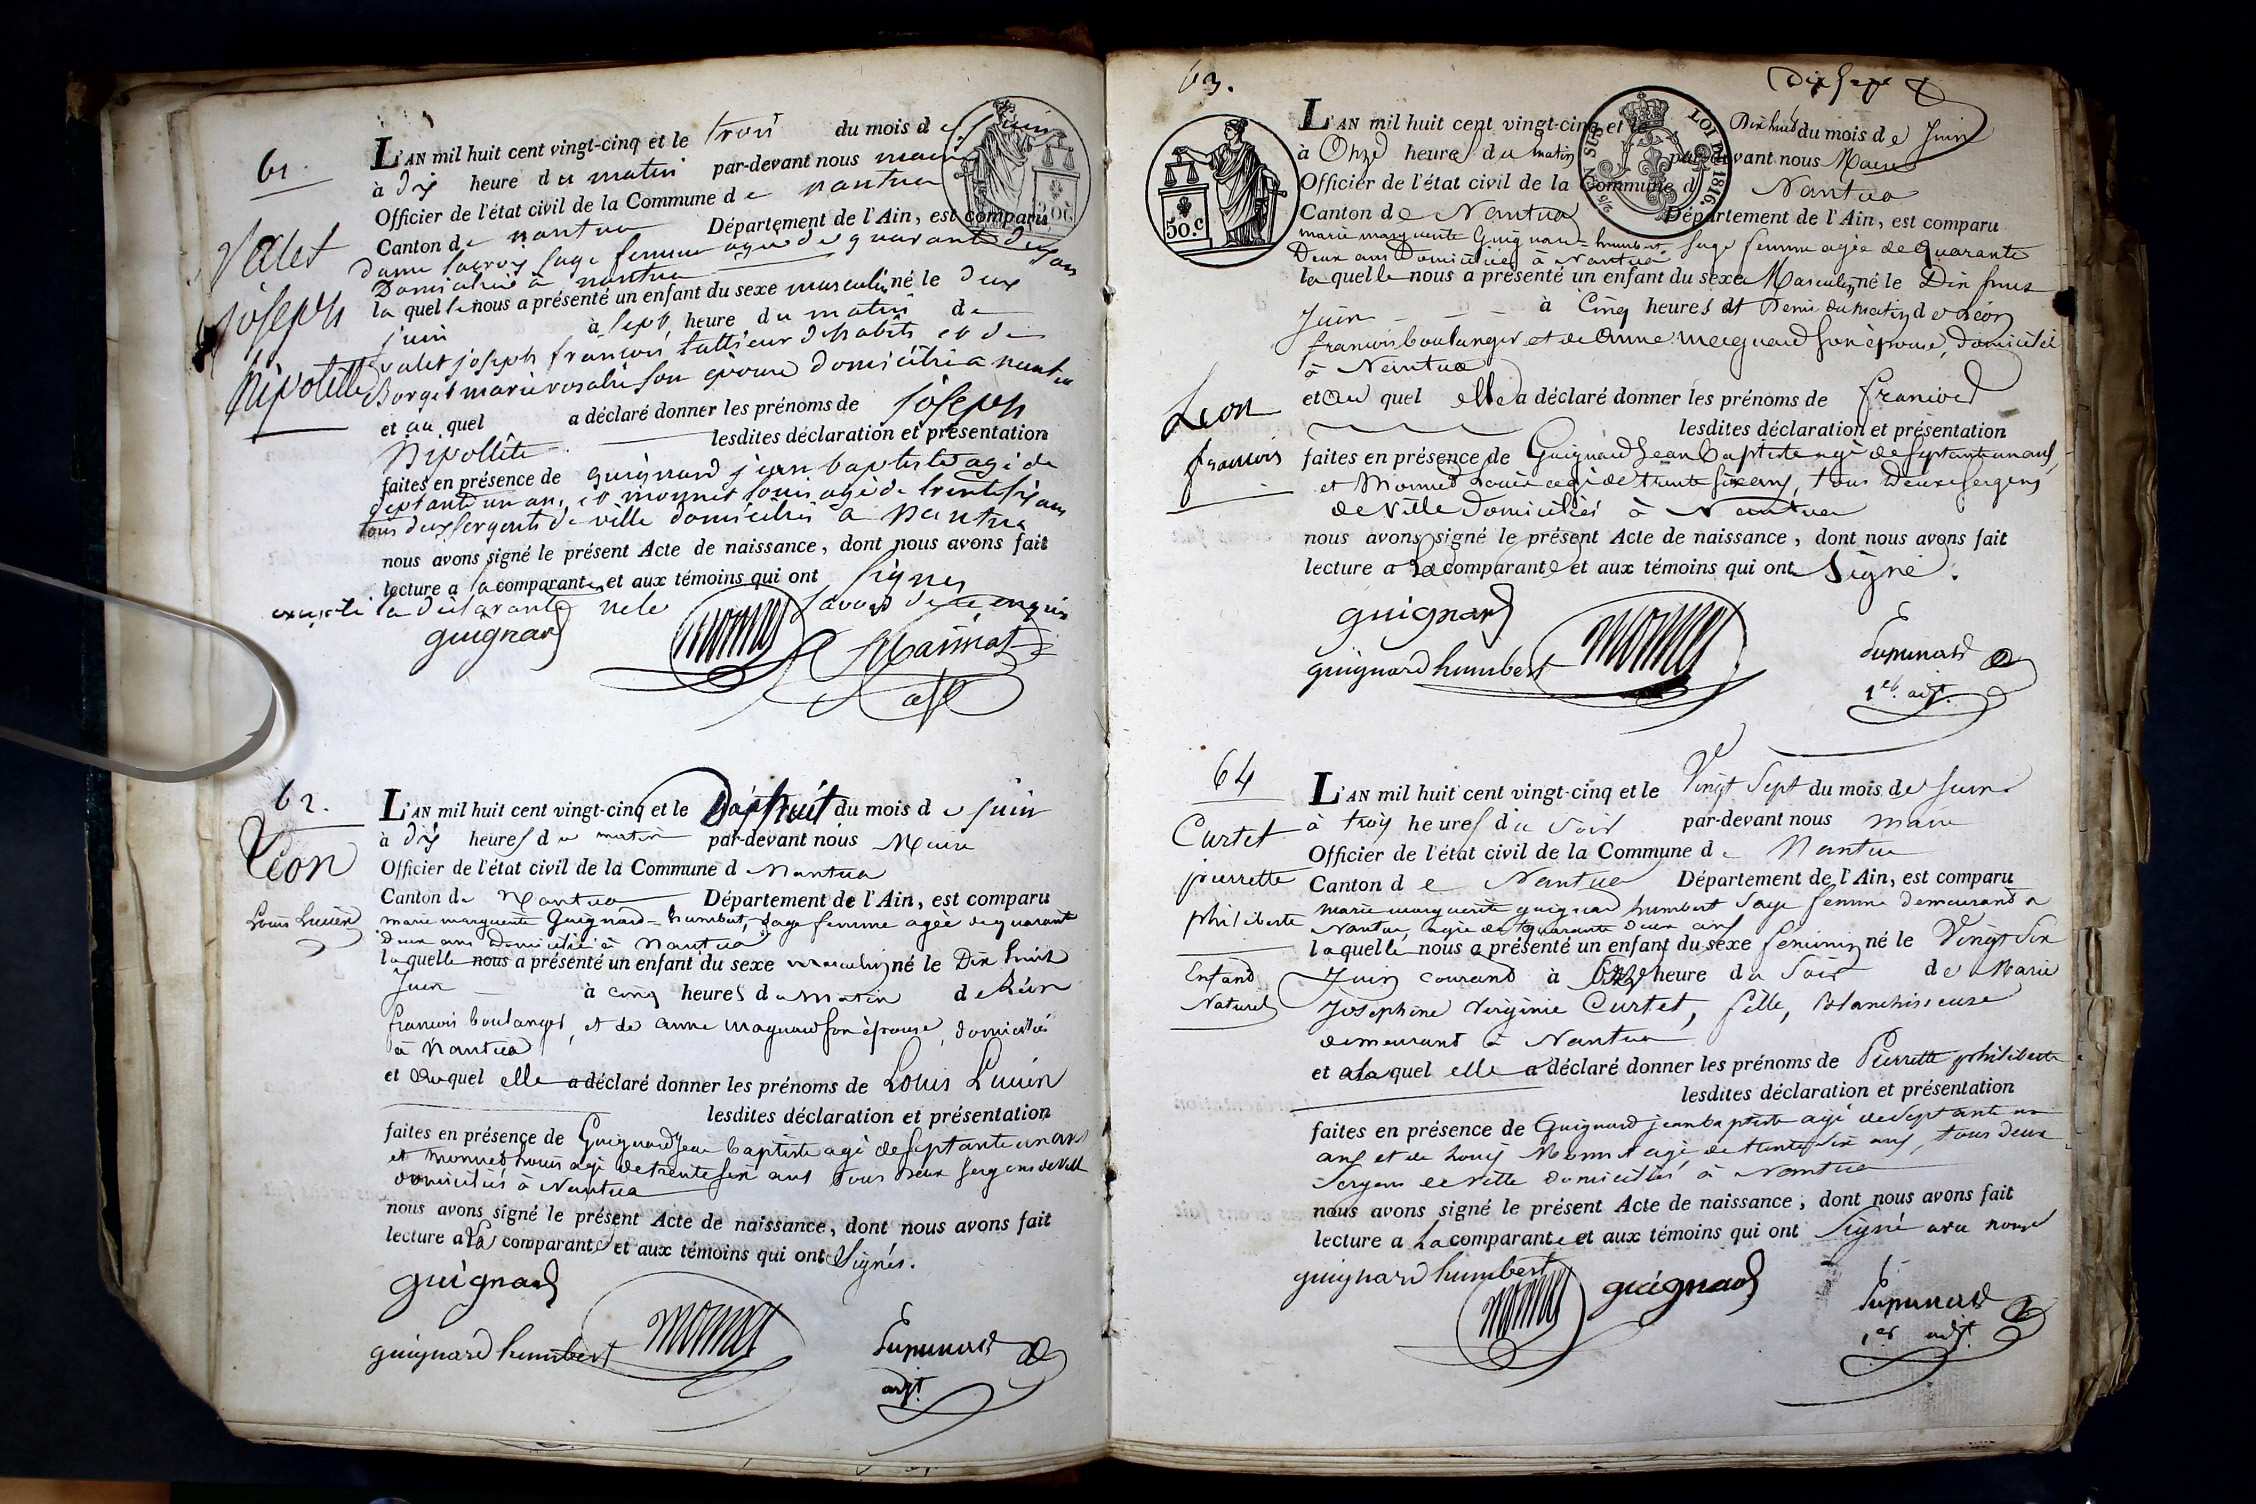 61.
Valet
joseph
hipolitte
L'AN mil huit cent vingt-cinq et le trois du mois de juin
à dix heure du matin par-devant nous maire
Officier de l'état civil de la Commune de nantua
Canton de nantua Département de l'Ain, est comparu
dame lacroix sage femme agée de quarante deux ans
Domiciliée à nantua
la quelle nous a présenté un enfant du sexe masculin né le deux
juin à sept heure du matin de
valet joseph francois tallieur d'habits et de
Borget marie rosalie son épouse domicilié a nantua
et au quel a déclaré donner les prénoms de joseph
hipollite lesdites déclaration et présentation
faites en présence de guignard jean baptiste agé de
septante un an, et monnet louis agé de trente six ans
tous deux sergents de ville domiciliés à nantua
nous avons signé le présent Acte de naissance, dont nous avons fait
lecture a la comparante et aux témoins qui ont signer
excepté la déclarante ne le savoir de ce enquise
guignard monnet
62.
Léon
Louis Lucien
L'AN mil huit cent vingt-cinq et le Dix huit du mois de juin
à dix heures du matin par-devant nous Maire
Officier de l'état civil de la Commune de Nantua
Canton de Nantua Département de l'Ain, est comparu
marie marguerite Guignard-humbert, sage femme agée de quarante
Deux ans domiciliée à Nantua
laquelle nous a présenté un enfant du sexe masculin né le Dix huit
Juin à cinq heures du matin de Léon
francois boulanger, et de anne maguard son épouse, domiciliés
à Nantua
et auquel elle a déclaré donner les prénoms de Louis Lucien
lesdites déclaration et présentation
faites en présence de Guignard Jean baptiste agé de septante un ans
et monnet Louis agé de trente six ans tous deux sergens de ville
domiciliés à Nantua
nous avons signé le présent Acte de naissance, dont nous avons fait
lecture a la comparante et aux témoins qui ont Signés.
guignard
guignard humbert monnet
adjt.
Dix sept
63.
50.C
LOI DE 1816.
Léon
francois
L'AN mil huit cent vingt-cinq et le Dix huit du mois de Juin
à Onze heures du matin par-devant nous Maire
Officier de l'état civil de la Commune de Nantua
Canton de Nantua Département de l'Ain, est comparu
marie marguerite Guignard-humbert Sage femme agée de Quarante
Deux ans Domiciliée à Nantua
laquelle nous a présenté un enfant du sexe Masculin né le Dix huit
Juin à Cinq heures et Demi du matin de Léon
francois boulanger et de Anne maguard son épouse, domiciliés
à Nantua
et au quel elle a déclaré donner les prénoms de francois
lesdites déclaration et présentation
faites en présence de Guignard Jean baptiste agé de septante un ans,
et Monnet Louis agé de trente six ans, tous deux sergens
de ville domiciliés à Nantua
nous avons signé le présent Acte de naissance, dont nous avons fait
lecture a la comparante et aux témoins qui ont Signé.
guignard
guignard humbert monnet
1er. adjt.
64
Curtet
pierrette
philiberte
Enfand
Naturel
L'AN mil huit cent vingt-cinq et le Vingt Sept du mois de Juin
à trois heures du Soir par-devant nous maire
Officier de l'état civil de la Commune de Nantua
Canton de Nantua Département de l'Ain, est comparu
marie marguerite guignard humbert sage femme demeurand à
Nantua agée de quarante deux ans
laquelle nous a présenté un enfant du sexe feminin né le Vingt Six
Juin courand à onze heure du Soir de Marie
Josephine Virginie Curtet, fille, blanchisseuse
demeurant à Nantua
et a la quel elle a déclaré donner les prénoms de Pierrette philiberte
lesdites déclaration et présentation
faites en présence de Guignard jean baptiste agé de septante un
ans et de Louis Monnet agé de trente six ans, tous deux
Sergens de ville domiciliés à Nantua
nous avons signé le présent Acte de naissance, dont nous avons fait
lecture a La comparante et aux témoins qui ont Signé avec nous
guignard humbert monnet guignard
1er adjt.